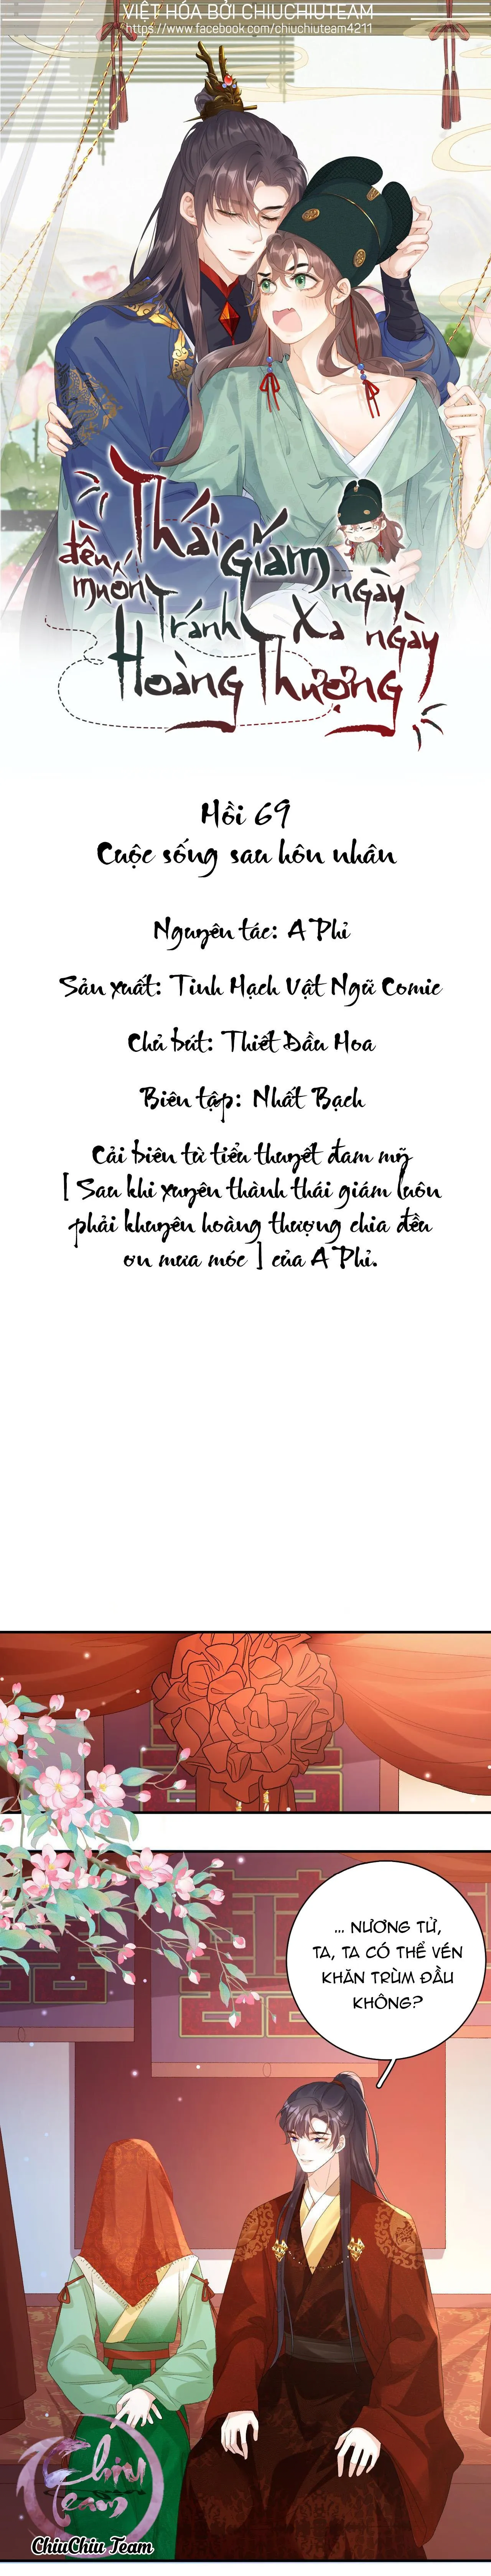 VIỆT HÓA BỞI CHIUCHIUTEAM
https://www.facebook.com/chiuchiuteam4211
Thái giám
ngày ngày
đều muốn
Tránh Xa
Hoàng Thượng
Hồi 69
Cuộc sống sau hôn nhân
Nguyên tác: A Phỉ
Sản xuất: Tinh Hạch Vật Ngữ Comic
Chủ bút: Thiết Đầu Hoa
Biên tập: Nhất Bạch
Cải biên từ tiểu thuyết đam mỹ
[ Sau khi xuyên thành thái giám luôn
phải khuyên hoàng thượng chia đều
ơn mưa móc ] của A Phỉ.
... NƯƠNG TỬ,
TA, TA CÓ THỂ VÉN
KHĂN TRÙM ĐẦU
KHÔNG?
Chiu
Team
ChiuChiu Team